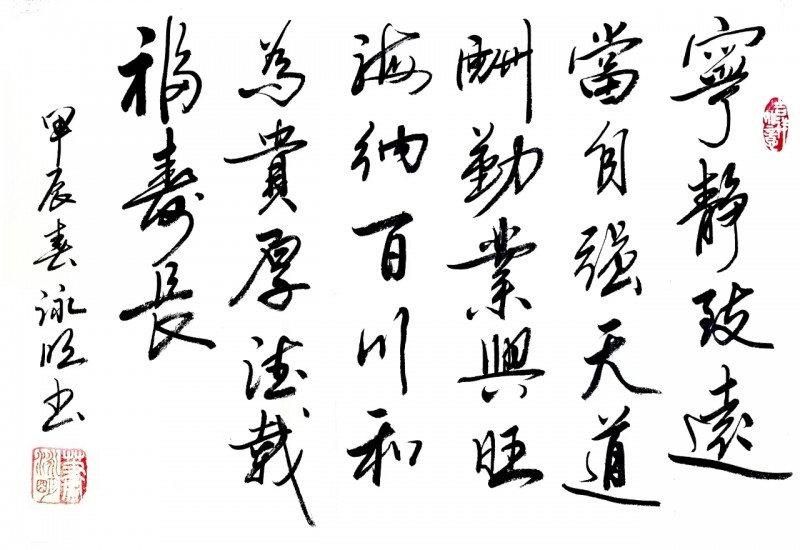 寧靜致遠
當自强天道
酬勤業興旺
海納百川和
為貴厚德載
福壽長
甲辰春泳书